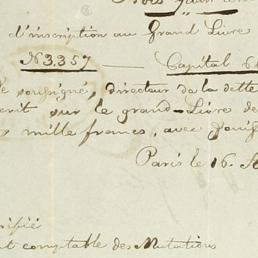 d'inscription au Grand Livre
N 3.357 — Capital 6
soussigné, directeur de la dette
crit sur le grand-Livre de
mille francs, avec jouis
Paris le 16. S
rifié
t comptable des Mutations